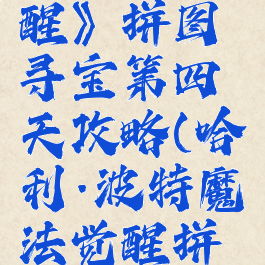 醒》拼图
寻宝第四
天攻略(哈
利·波特魔
法觉醒拼